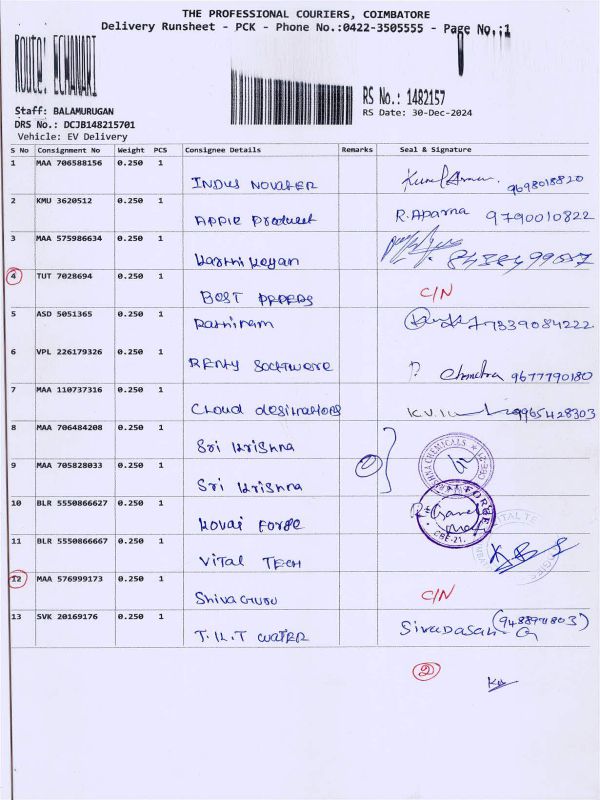 THE PROFESSIONAL COURIERS, COIMBATORE
Delivery Runsheet - PCK - Phone No.:0422-3505555 - Page No.:1
Route: ECHANARI
RS No.: 1482157
RS Date: 30-Dec-2024
Staff: BALAMURUGAN
DRS No.: DCJB148215701
Vehicle: EV Delivery
S No Consignment No Weight PCS Consignee Details Remarks Seal & Signature
1 MAA 706588156 0.250 1
INDUS NOVATER 9698018820
2 KMU 3620512 0.250 1
APPLE Product R. Aparna 9790010822
3 MAA 575986634 0.250 1
Karthikeyan
4 TUT 7028694 0.250 1
BEST C/N
5 ASD 5051365 0.250 1
Rathinam 7339084222
6 VPL 226179326 0.250 1
RENTY Software Chandra 9677790180
7 MAA 110737316 0.250 1
Cloud destinations 9965428303
8 MAA 706484208 0.250 1
Sri Krishna
9 MAA 705828033 0.250 1
Sri Krishna 2
CHEMICALS
CBE-21
10 BLR 5550866627 0.250 1
Kovai Forge
FORGE
CBE-21.
11 BLR 5550866667 0.250 1
VITAL TECH
VITAL TE
12 MAA 576999173 0.250 1
Shiva Guru C/N
13 SVK 20169176 0.250 1
T.K.T WATER Sivadasan G (9488971803)
2